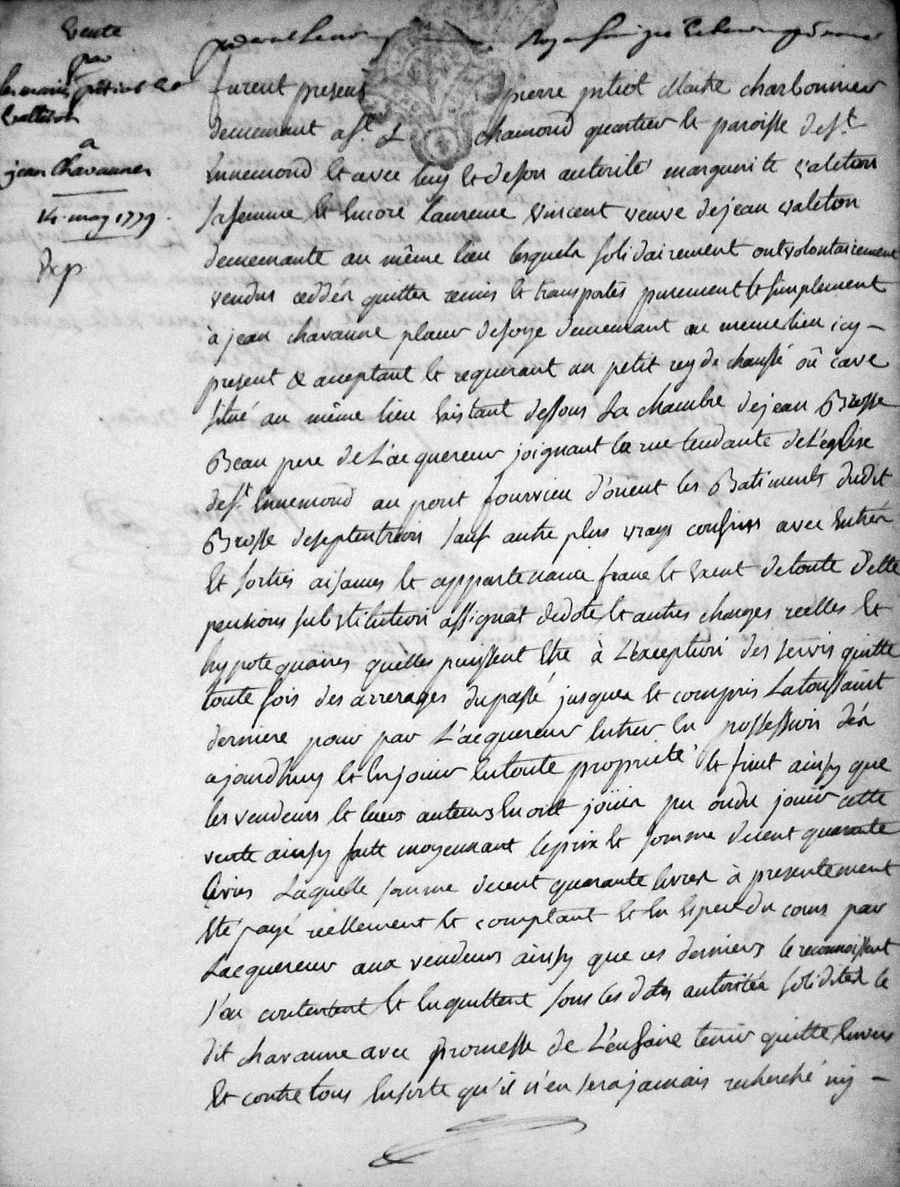 vente
par
les mariés
valleton
a
jean Chavanne
14 may 1779.
Exp.
pardevant le no
furent present pierre pitiot Maitre charbonnier
demeurant a St. chamond quartier et paroisse de St.
Ennemond et avec luy et de son autorité marguerite valeton
sa femme et encore laurence vincent veuve de jean valeton
demeurante au même lieu lesquels solidairement ont volontairement
vendus cedder quitter remis et transportés purement et simplement
à jean chavanne plieur de soye demeurant au meme lieu icy –
present & acceptant et requerant un petit rey de chaussé où cave
situé au même lieu Existant dessous La chambre de jean Brosse
Beau pere de L'acquereur joignant la rue tendante de L'eglise
de St. Ennemond au pont fourvieu d'orient les Batiments dudit
Brosse de septentrion sauf autre plus vrays confins avec Entrées
Et sorties aisances et appartenance franc et Exent de toute dette
pensions substitution assignat de dote et autres charges reelles et
hypotequaires quelles puissent Etre à L'exception des servis quitte
toute fois des arrerages du passé jusques et compris La toussaint
derniere pour par L'acquereur Entrer En possession dés
ajourdhuy et En jouir En toute propriété et fruit ainsy que
les vendeurs et leurs auteurs En ont joüir pu ou du jouir cette
vente ainsy faite moyennant le prix et somme de cent quarante
livres Laquelle somme de cent quarante livres à presentement
Eté payé réellement et comptant Et En Espece du cours par
L'acquereur aux vendeurs ainsy que ces derniers le reconnoissent
s'en contentent Et En quittent sous les dites autorités solidités le
dit chavanne avec promesse de L'en faire tenir quitte Envers
Et contre tous Ensorte qu'il n'en sera jamais recherché ny –